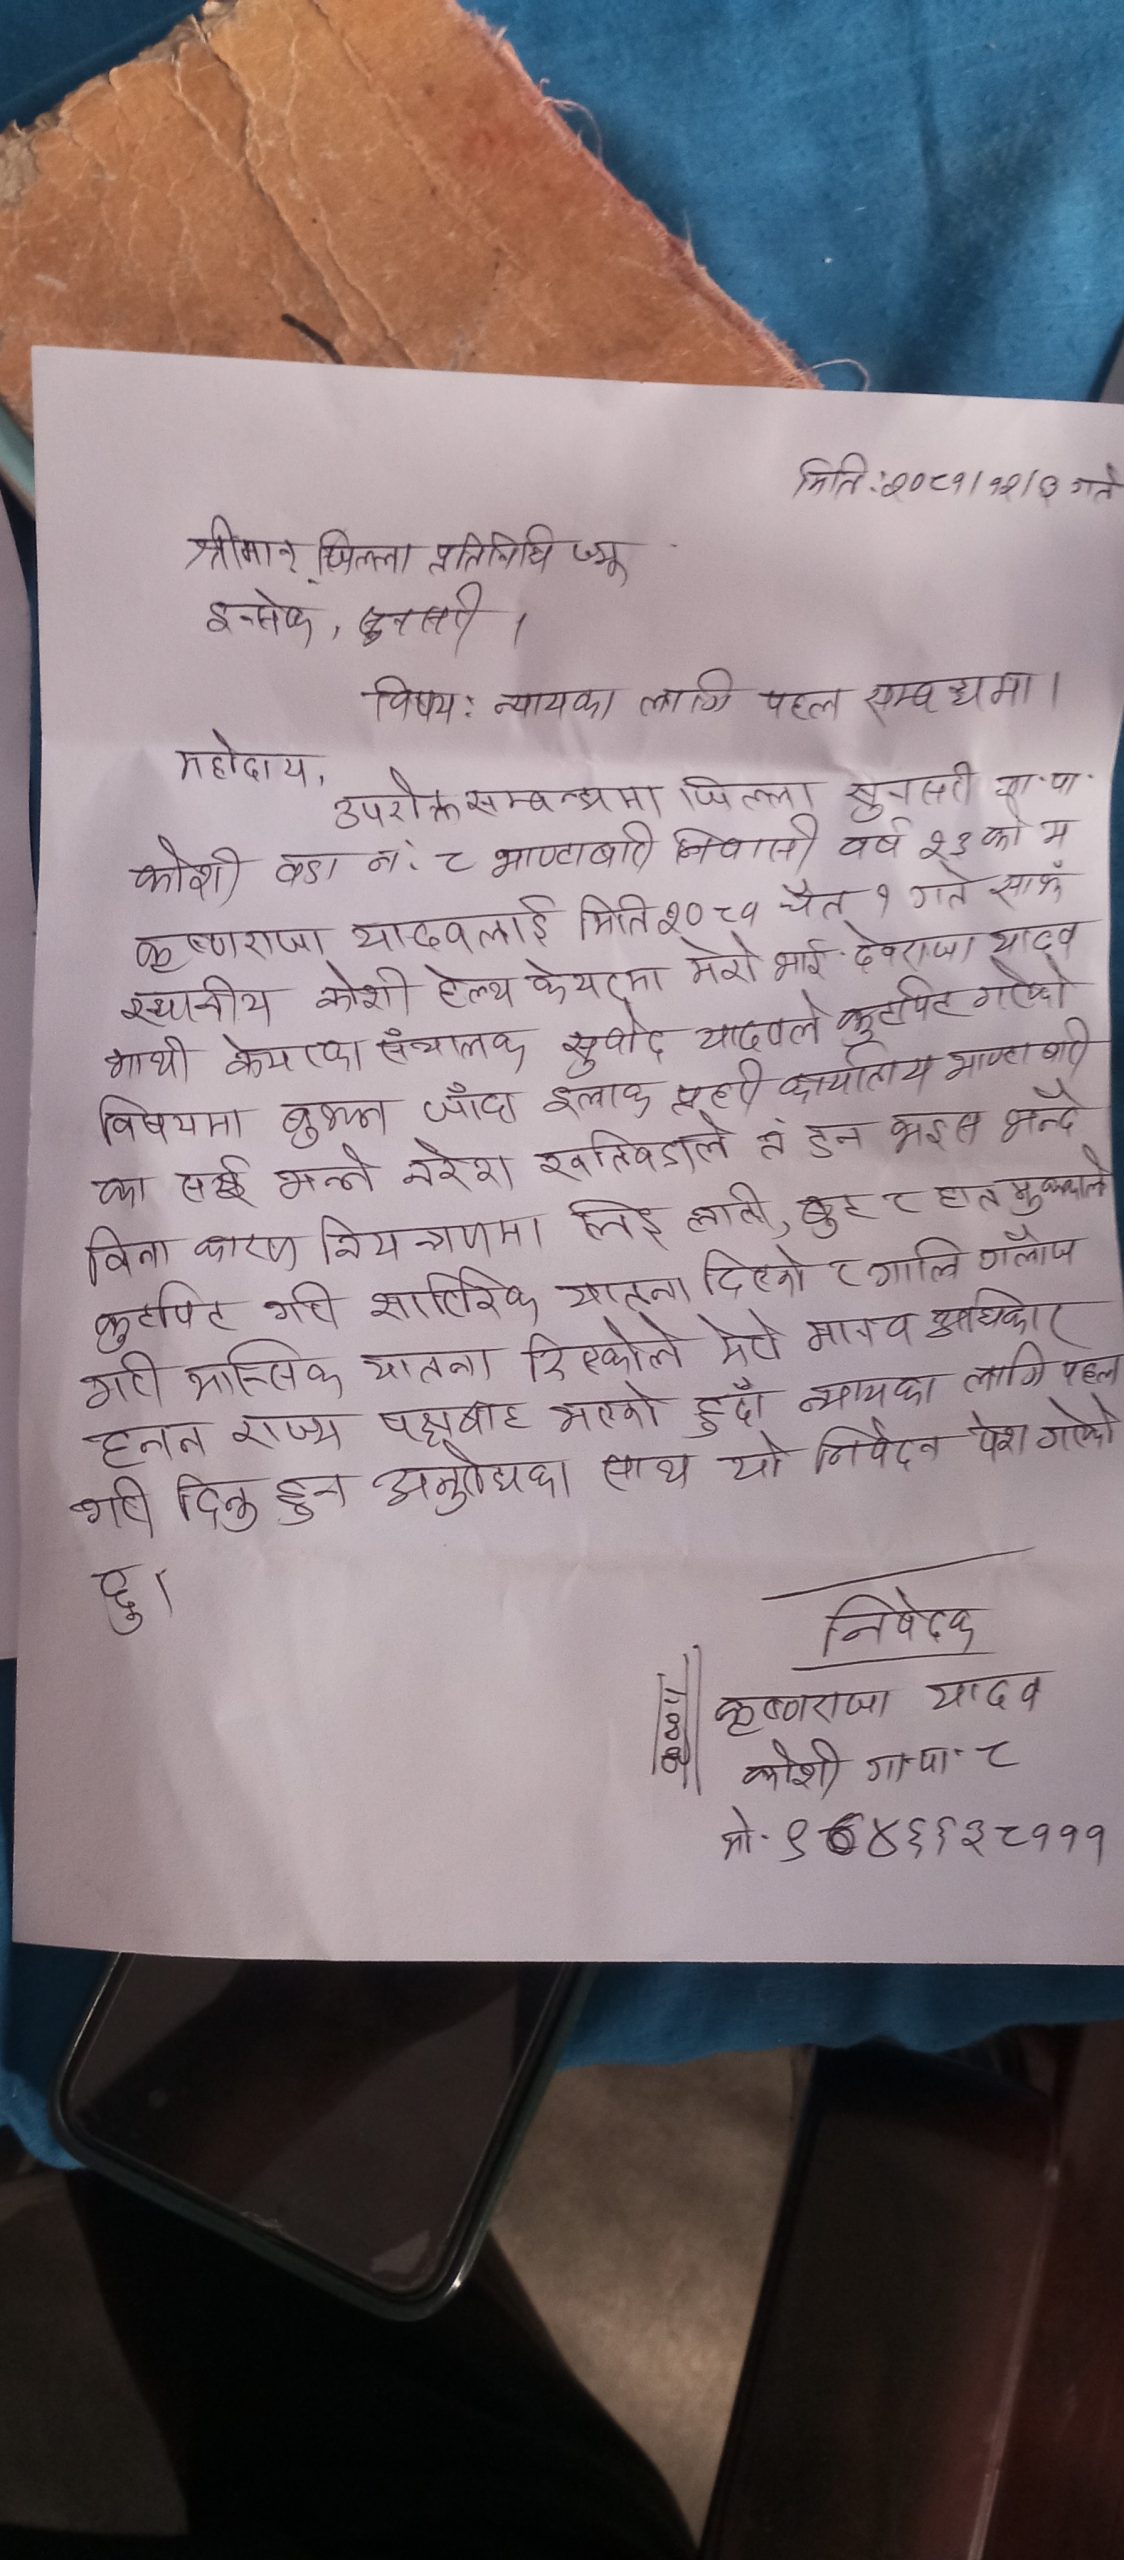 मिति: २०८१/१२/३ गते
श्रीमान् जिल्ला प्रतिनिधि ज्यू
इन्सेक, सुनसरी ।
विषय: न्यायका लागि पहल सम्बन्धमा ।
महोदाय,
उपरोक्त सम्बन्धमा जिल्ला सुनसरी गा.पा.
कोशी वडा नं: ८ भाण्टाबारी निवासी वर्ष २३ को म
कृष्णराजा यादवलाई मिति २०८१ चैत १ गते साझँ
स्थानीय कोशी हेल्थ केयरमा मेरो भाई देवराजा यादव
माथी केयरका संञ्चालक सुवोद यादवले कुटपिट गरेको
विषयमा बुझ्न जाँदा इलाका प्रहरी कार्यालय भाण्टाबारी
का सई भन्ने नरेश खतिवडाले तं डन भइस भन्दै
विना कारण नियन्त्रणमा लिइ लात्ती, बुट र हात मुक्काले
कुटपिट गरी सारिरिक यातना दिएको र गालि गलौज
गरी मान्सिक यातना दिएकोले मेरो मानव अधिकार
हनन राज्य पक्षबाट भएको हुदाँ न्यायका लागि पहल
गरी दिनु हुन अनुरोधका साथ यो निवेदन पेश गरेको
छु ।
निवेदक
कृष्णराजा यादव
कोशी गा.पा. ८
मो. ९८४६६३८१११